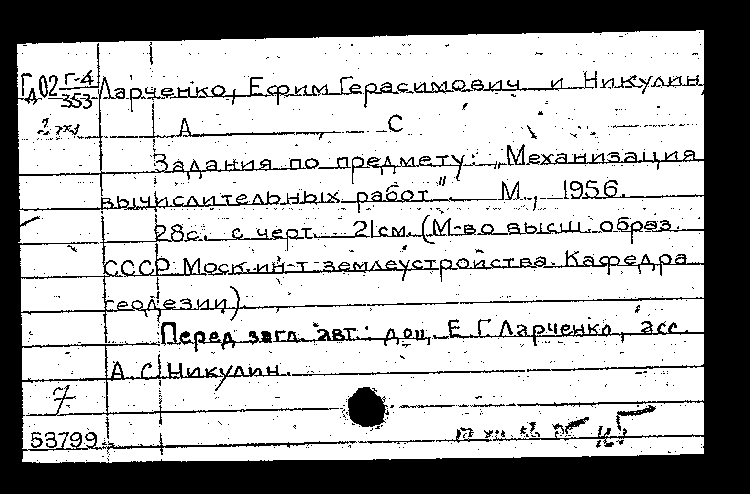 Гд02 Г-4/353 Ларченко, Ефим Герасимович и Никулин,
2 экз А , С
Задания по предмету: „Механизация
вычислительных работ". М, 1956.
28с. с черт. 21см. (М-во высш. образ.
СССР. Моск. ин-т землеустройства. Кафедра
геодезии).
Перед загл. авт.: доц. Е. Г. Ларченко, асс.
А. С. Никулин.
7
53799